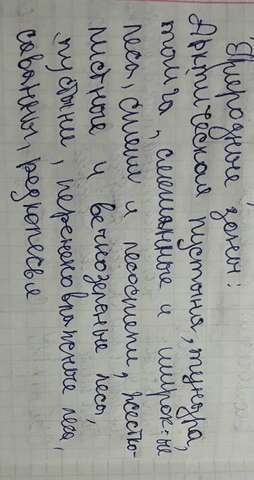 Природные зоны:
Арктическая пустыня, тундра,
тайга, смешанные и широк-ые
леса, степи и лесостепи, жестко-
листные и вечнозеленые леса,
пустыни, переменно влажные леса,
саванны, редколесья